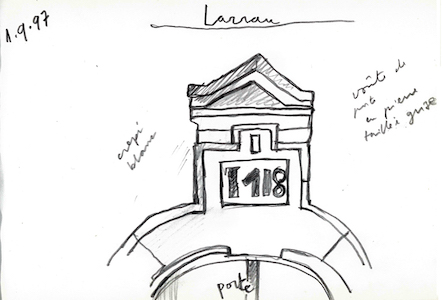 1.9.97
Larrau
crepi
blanc
voûte de
porte
en pierre
taillée grise
1118
porte